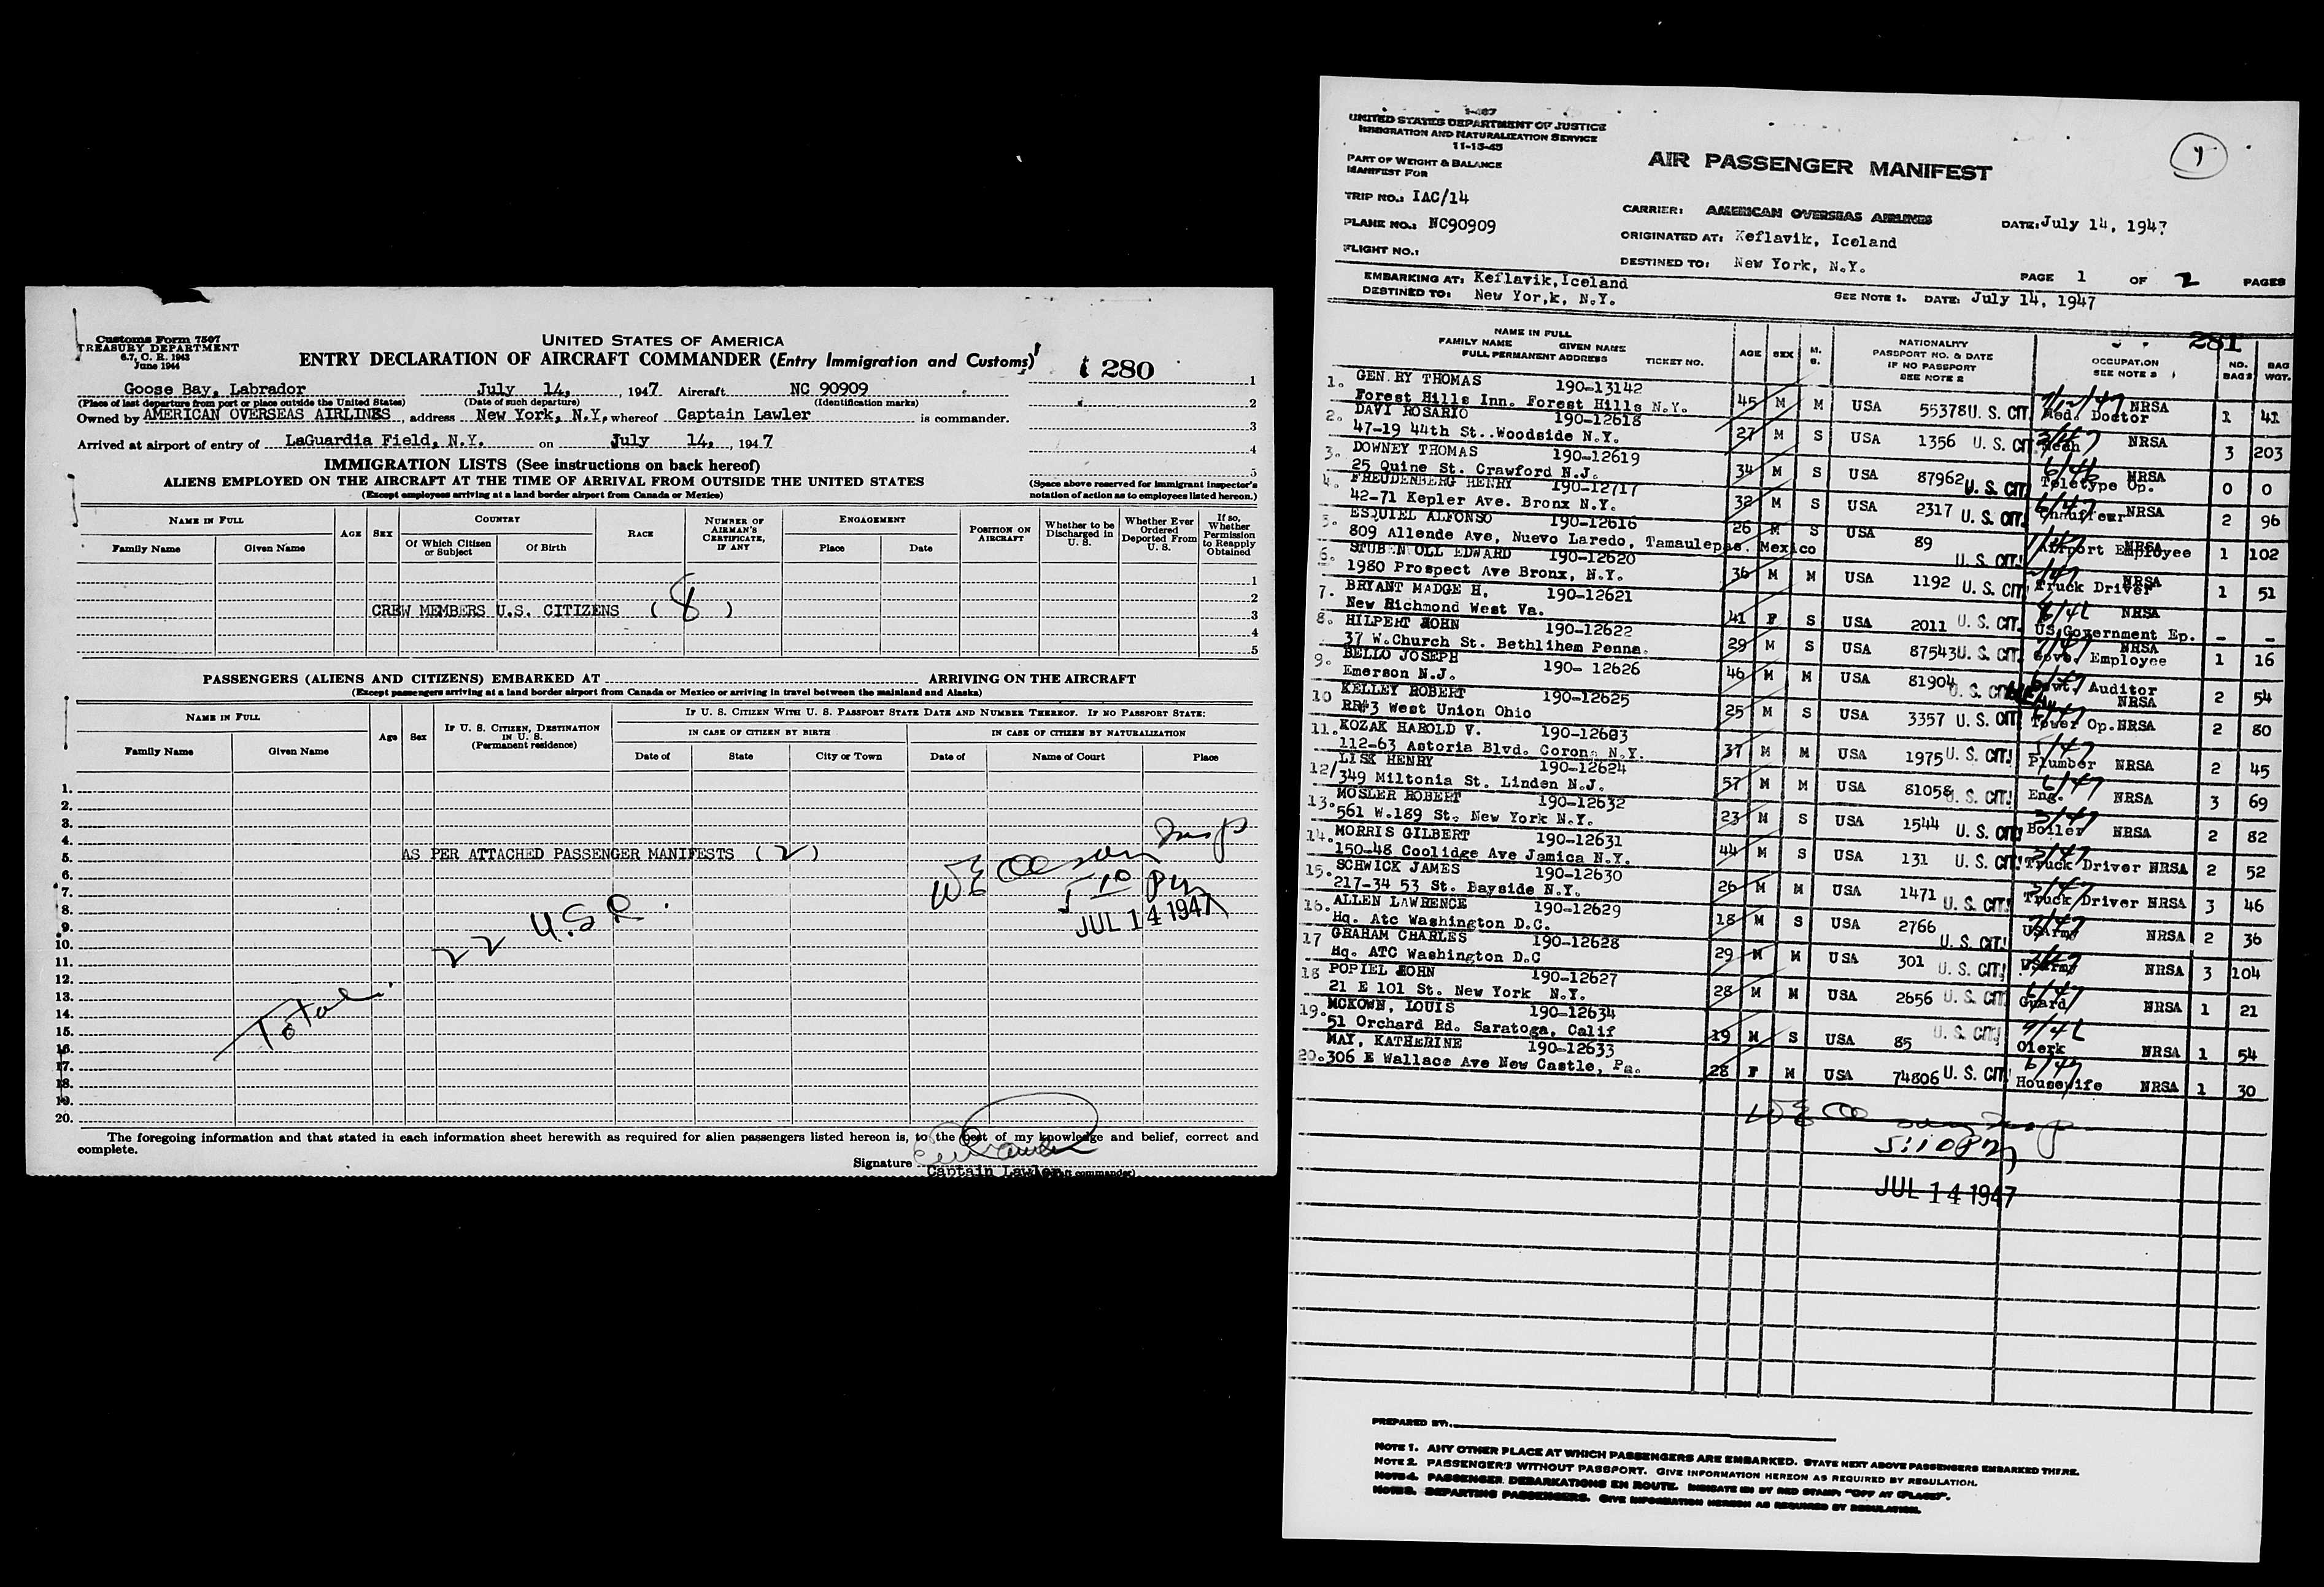 Customs Form 7507
TREASURY DEPARTMENT
6.7, C. R. 1943
June 1944
UNITED STATES OF AMERICA
ENTRY DECLARATION OF AIRCRAFT COMMANDER (Entry Immigration and Customs)
280
Goose Bay, Labrador July 14, , 1947 Aircraft NC 90909
(Place of last departure from port or place outside the United States) (Date of such departure) (Identification marks)
Owned by AMERICAN OVERSEAS AIRLINES, address New York, N.Y, whereof Captain Lawler is commander.
Arrived at airport of entry of LaGuardia Field, N.Y. on July 14, , 1947
1
2
3
4
5
(Space above reserved for immigrant inspector's notation of action as to employees listed hereon.)
IMMIGRATION LISTS (See instructions on back hereof)
ALIENS EMPLOYED ON THE AIRCRAFT AT THE TIME OF ARRIVAL FROM OUTSIDE THE UNITED STATES
(Except employees arriving at a land border airport from Canada or Mexico)
NAME IN FULL
Family Name Given Name
AGE SEX
COUNTRY
Of Which Citizen or Subject Of Birth
RACE
NUMBER OF AIRMAN'S CERTIFICATE, IF ANY
ENGAGEMENT
Place Date
POSITION ON AIRCRAFT
Whether to be Discharged in U. S.
Whether Ever Ordered Deported From U. S.
If so, Whether Permission to Reapply Obtained
1
2
CREW MEMBERS U.S. CITIZENS ( 8 ) 3
4
5
PASSENGERS (ALIENS AND CITIZENS) EMBARKED AT ARRIVING ON THE AIRCRAFT
(Except passengers arriving at a land border airport from Canada or Mexico or arriving in travel between the mainland and Alaska)
NAME IN FULL
Family Name Given Name
Age Sex
IF U. S. CITIZEN, DESTINATION IN U. S. (Permanent residence)
IF U. S. CITIZEN WITH U. S. PASSPORT STATE DATE AND NUMBER THEREOF. IF NO PASSPORT STATE:
IN CASE OF CITIZEN BY BIRTH IN CASE OF CITIZEN BY NATURALIZATION
Date of State City or Town Date of Name of Court Place
1.
2.
3.
4.
5. AS PER ATTACHED PASSENGER MANIFESTS ( 2 )
6.
7.
8.
9.
10.
11.
12.
13.
14.
15.
16.
17.
18.
19.
20.
Insp
5 10 pm
JUL 14 1947
22
Total
The foregoing information and that stated in each information sheet herewith as required for alien passengers listed hereon is, to the best of my knowledge and belief, correct and
complete.
Signature
Captain Lawler
1-467
UNITED STATES DEPARTMENT OF JUSTICE
IMMIGRATION AND NATURALIZATION SERVICE
11-15-45
PART OF WEIGHT & BALANCE
MANIFEST FOR
AIR PASSENGER MANIFEST
TRIP NO.: IAC/14
CARRIER: AMERICAN OVERSEAS AIRLINES DATE: July 14, 1947
PLANE NO.: NC90909
ORIGINATED AT: Keflavik, Iceland
FLIGHT NO.:
DESTINED TO: New York, N.Y. PAGE 1 OF 2 PAGES
EMBARKING AT: Keflavik,Iceland
DESTINED TO: New Yor,k, N.Y. SEE NOTE 1. DATE: July 14, 1947
281
NAME IN FULL
FAMILY NAME GIVEN NAME
FULL PERMANENT ADDRESS TICKET NO.
AGE SEX M. S.
NATIONALITY
PASSPORT NO. & DATE
IF NO PASSPORT
SEE NOTE 2
OCCUPATION
SEE NOTE 3
NO. BAGS
BAG WGT.
1. GEN.RY THOMAS 190-13142
Forest Hills Inn. Forest Hills N.Y. 45 M M USA 55378 U. S. CIT. Med. Doctor NRSA 1 41
2. DAVI ROSARIO 190-12618
47-19 44th St..Woodside N.Y. 27 M S USA 1356 U. S. CIT NRSA 3 203
3. DOWNEY THOMAS 190-12619
25 Quine St. Crawford N.J. 34 M S USA 87962 U. S. CIT. Teletype Op. NRSA 0 0
4. FREUDENBERG HENRY 190-12717
42-71 Kepler Ave. Bronx N.Y. 32 M S USA 2317 U. S. CIT. Chauffeur NRSA 2 96
5. ESQUIEL ALFONSO 190-12616
809 Allende Ave, Nuevo Laredo, Tamaulepas. Mexico 26 M S USA 89 U. S. CIT. Airport Employee NRSA 1 102
6. STUBENVOLL EDWARD 190-12620
1980 Prospect Ave Bronx, N.Y. 36 M M USA 1192 U. S. CIT Truck Driver NRSA 1 51
7. BRYANT MADGE H. 190-12621
New Richmond West Va. 41 F S USA 2011 U. S. CIT. US Government Ep. NRSA - -
8. HILPERT JOHN 190-12622
37 W.Church St. Bethlihem Penna. 29 M S USA 87543 U. S. CIT. Gove. Employee NRSA 1 16
9. BELLO JOSEPH 190- 12626
Emerson N.J. 46 M M USA 81904 U. S. CIT Govt. Auditor NRSA 2 54
10 KELLEY ROBERT 190-12625
RR#3 West Union Ohio 25 M S USA 3357 U. S. CIT Tower Op. NRSA 2 80
11. KOZAK HAROLD V. 190-12603
112-63 Astoria Blvd. Corona N.Y. 37 M M USA 1975 U. S. CIT. Plumber NRSA 2 45
12/ LISK HENRY 190-12624
349 Miltonia St. Linden N.J. 57 M M USA 81058 U. S. CIT. Eng. NRSA 3 69
13. MOSLER ROBERT 190-12632
561 W.189 St. New York N.Y. 23 M S USA 1544 U. S. CIT. Boiler NRSA 2 82
14. MORRIS GILBERT 190-12631
150-48 Coolidge Ave Jamica N.Y. 44 M S USA 131 U. S. CIT. Truck Driver NRSA 2 52
15. SCHWICK JAMES 190-12630
217-34 53 St. Bayside N.Y. 26 M M USA 1471 U. S. CIT. Truck Driver NRSA 3 46
16. ALLEN LAWRENCE 190-12629
Hq. Atc Washington D.C. 18 M S USA 2766 U. S. CIT. USArmy NRSA 2 36
17 GRAHAM CHARLES 190-12628
Hq. ATC Washington D.C 29 M M USA 301 U. S. CIT. USArmy NRSA 3 104
18 POPIEL JOHN 190-12627
21 E 101 St. New York N.Y. 28 M M USA 2656 U. S. CIT. Guard NRSA 1 21
19. MCKOWN, LOUIS 190-12634
51 Orchard Rd. Saratoga, Calif 19 M S USA 85 U. S. CIT. Clerk NRSA 1 54
MAY, KATHERINE 190-12633
20. 306 E Wallace Ave New Castle, Pa. 28 F M USA 74806 U. S. CIT. Housewife NRSA 1 30
5:10 Pm
JUL 14 1947
PREPARED BY:
NOTE 1. ANY OTHER PLACE AT WHICH PASSENGERS ARE EMBARKED. STATE NEXT ABOVE PASSENGERS EMBARKED THERE.
NOTE 2. PASSENGERS WITHOUT PASSPORT. GIVE INFORMATION HEREON AS REQUIRED BY REGULATION.
NOTE 4. PASSENGER DEBARKATIONS EN ROUTE. INDICATE IN BY RED STAMP: "OFF AT (PLACE)".
NOTE 3. DEPARTING PASSENGERS. GIVE INFORMATION HEREON AS REQUIRED BY REGULATION.